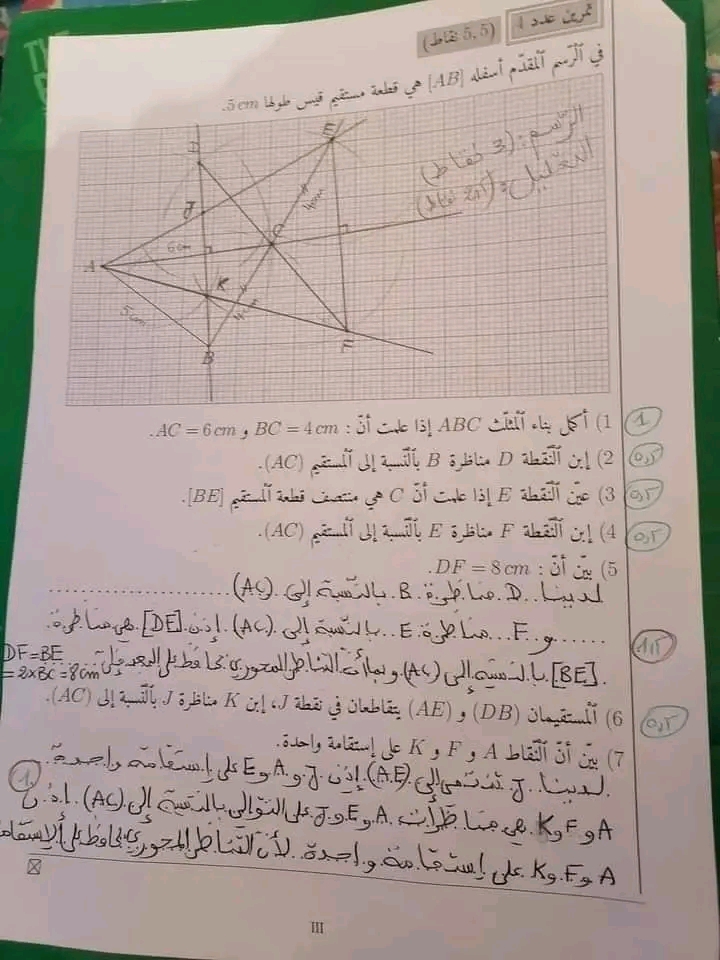 تمرين عدد 4 (5,5 نقاط)
في ٱلرّسم ٱلمقدّم أسفله [AB] هي قطعة مستقيم قيس طولها 5 cm.
الرّسم: (3 نقاط)
التعليل:
D
E
J
4cm
C
6cm
A
K
4cm
5cm
B
F
1) أكمل بناء ٱلمثلّث ABC إذا علمت أنّ : BC = 4 cm و AC = 6 cm.
1
2) إبن ٱلنّقطة D مناظرة B بٱلنّسبة إلى ٱلمستقيم (AC).
0,5
3) عيّن ٱلنّقطة E إذا علمت أنّ C هي منتصف قطعة ٱلمستقيم [BE].
0,5
4) إبن ٱلنّقطة F مناظرة E بٱلنّسبة إلى ٱلمستقيم (AC).
0,5
5) بيّن أنّ : DF = 8 cm.
لدينا D مناظرة B بالنّسبة إلى (AC)
و F مناظرة E بالنّسبة إلى (AC). إذن [DE] هي مناظرة
1,5
[BE] بالنسبة إلى (AC) وبما أنّ التناظر المحوري يحافظ على البعد فإنّ DF = BE
= 2×BC = 8cm
6) ٱلمستقيمان (DB) و (AE) يتقاطعان في نقطة J، إبن K مناظرة J بٱلنّسبة إلى (AC).
0,5
7) بيّن أنّ ٱلنّقاط A و F و K على إستقامة واحدة.
لدينا J تنتمي إلى (AE). إذن J و A و E على إستقامة واحدة
1
A و F و K هي مناظرات A و E و J على التوالي بالنسبة إلى (AC)
A و F و K على إستقامة واحدة لأن التناظر المحوري يحافظ على الإستقامة
III